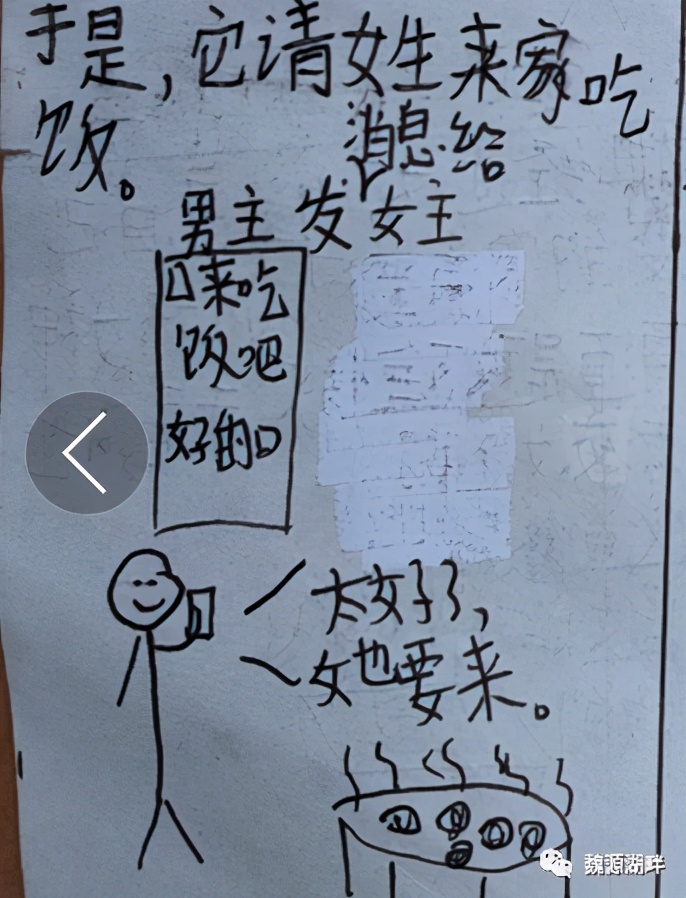 于是,它请女生来家吃
饭。
消息给
男主发女主
口来吃
饭吧
好的口
太好了,
她也要来。
魏源湖畔